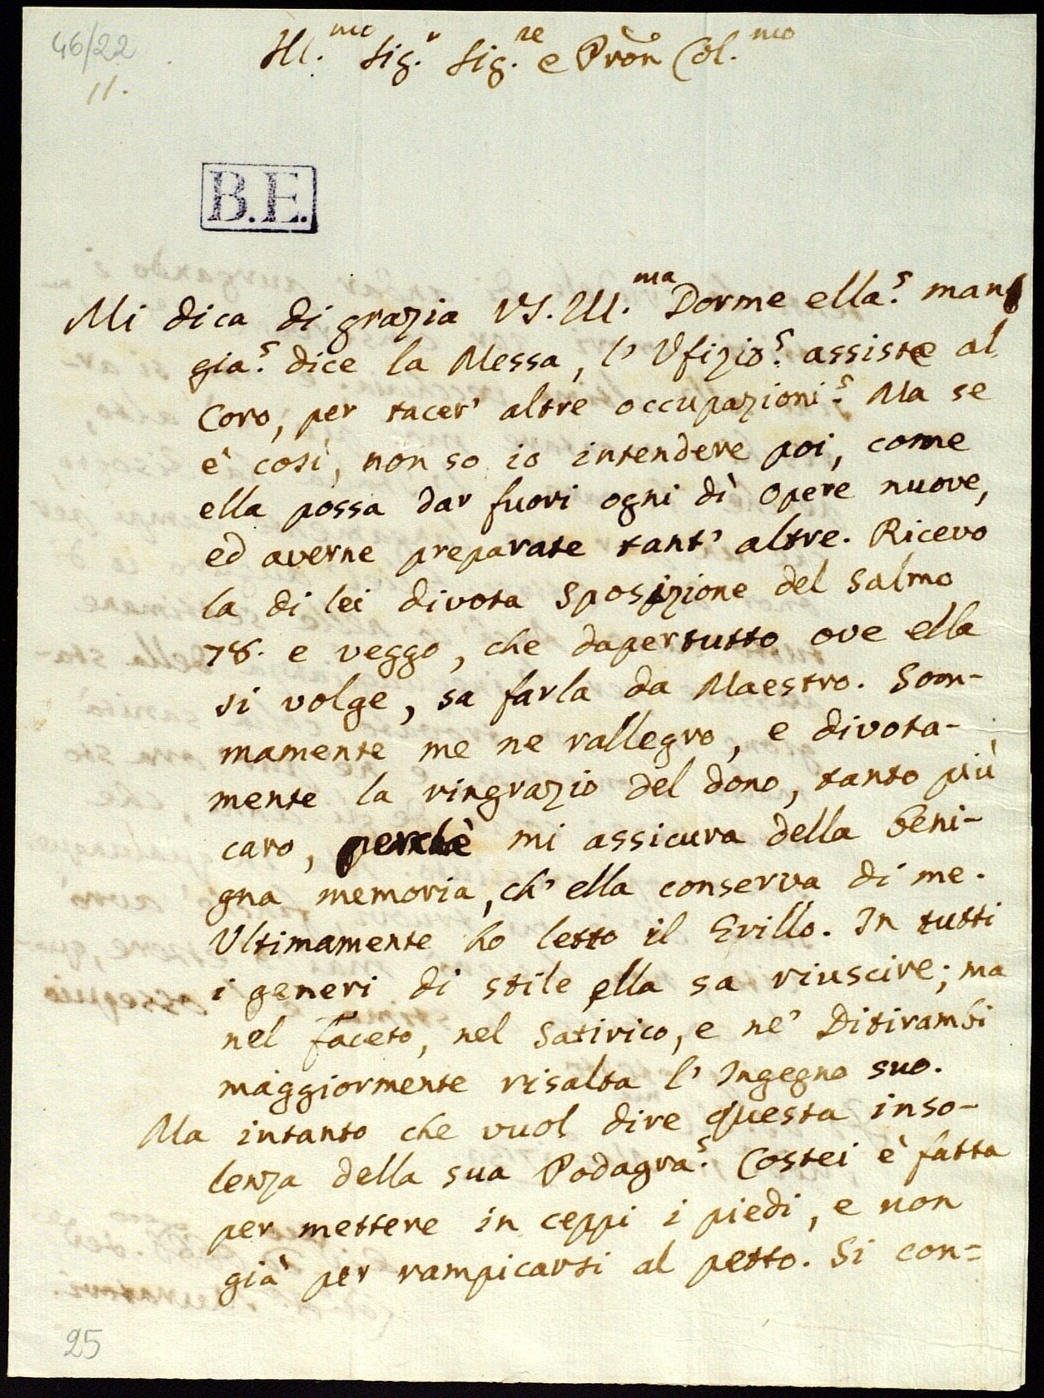 46/22
11.
Ill.mo Sig.r Sig.re e Pron Col.mo
B.E.
Mi dica di grazia VS. Ill.ma Dorme ella? man
gia? dice la Messa, l' Ufizio? assiste al
Coro, per tacer' altre occupazioni? Ma se
è così, non so io intendere poi, come
ella possa dar fuori ogni dì Opere nuove,
ed averne preparate tant' altre. Ricevo
la di lei divota Sposizione del Salmo
78. e veggo, che dapertutto ove ella
si volge, sa farla da Maestro. Som-
mamente me ne rallegro, e divota-
mente la ringrazio del dono, tanto più
caro, perchè mi assicura della beni-
gna memoria, ch' ella conserva di me.
Ultimamente ho letto il Grillo. In tutti
i generi di stile ella sa riuscire; ma
nel faceto, nel Satirico, e ne' Ditirambi
maggiormente risalta l' Ingegno suo.
Ma intanto che vuol dire questa inso-
lenza della sua Podagra? Costei è fatta
per mettere in ceppi i piedi, e non
già per rampicarsi al petto. Si con=
25